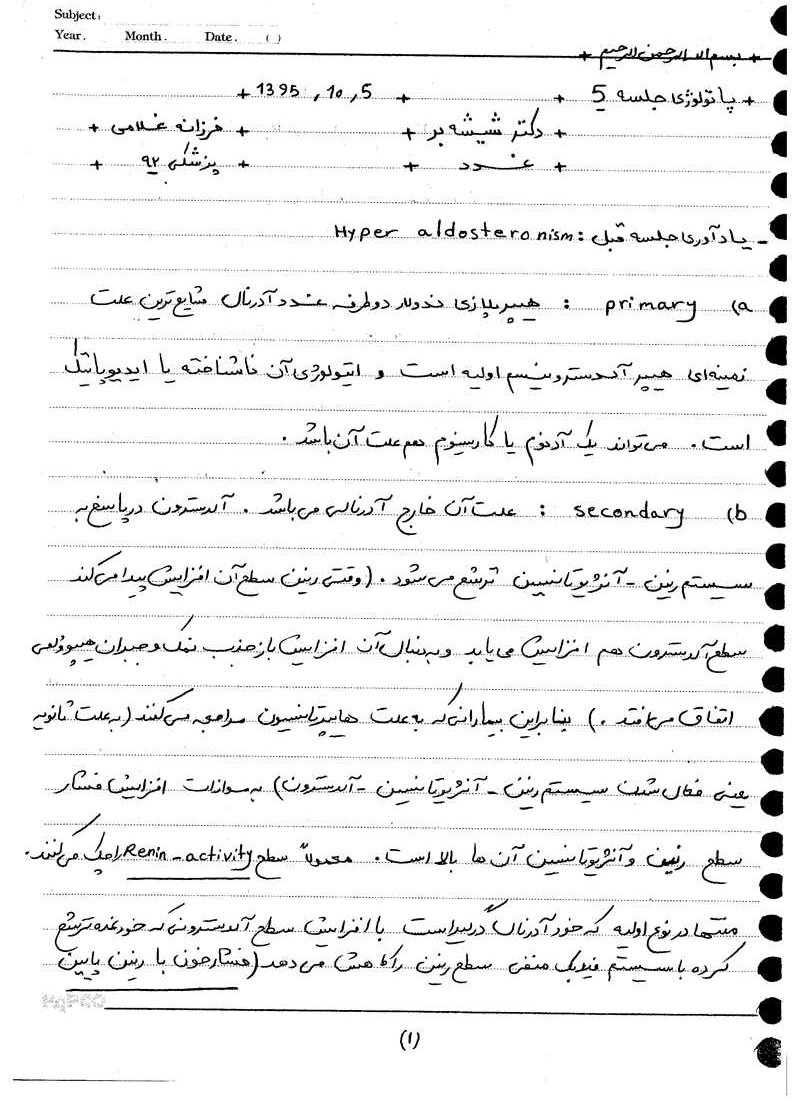 Subject:
Year. Month. Date. ( )
+ بسم الله الرحمن الرحیم +
+ پاتولوژی جلسه 5 + + 1395 , 10 , 5 +
+ دکتر شیشه بر + + فرزانه غلامی +
+ غدد + + پزشکی ۹۲ +
- یادآوری جلسه قبل : Hyper aldosteronism
a) primary : هیپرپلازی ندولار دوطرفه غدد آدرنال شایع ترین علت
زمینه‌ای هیپر آلدسترونیسم اولیه است و اتیولوژی آن ناشناخته یا ایدیوپاتیک
است . می‌تواند یک آدنوم یا کارسینوم هم علت آن باشد .
b) secondary : علت آن خارج آدرنالی می باشد . آلدسترون در پاسخ به
سیستم رنین - آنژیوتانسین ترشح می شود . (وقتی رنین سطح آن افزایش پیدا می کند
سطح آلدسترون هم افزایش می یابد و به دنبال آن افزایش باز جذب نمک و جبران هیپوولمی
اتفاق می افتد .) بنابراین بیمارانی که به علت هایپرتانسیون مراجعه می کنند (به علت ثانویه
یعنی فعال شدن سیستم رنین - آنژیوتانسین - آلدسترون) به موازات افزایش فشار
سطح رنین و آنژیوتانسین آن ها بالا است . معمولاً سطح Renin-activity را چک می کنند.
منتها در نوع اولیه که خود آدرنال درگیر است با افزایش سطح آلدسترونی که خود غده ترشح
کرده با سیستم فیدبک منفی سطح رنین را کاهش می دهد (فشار خون با رنین پایین
(۱)